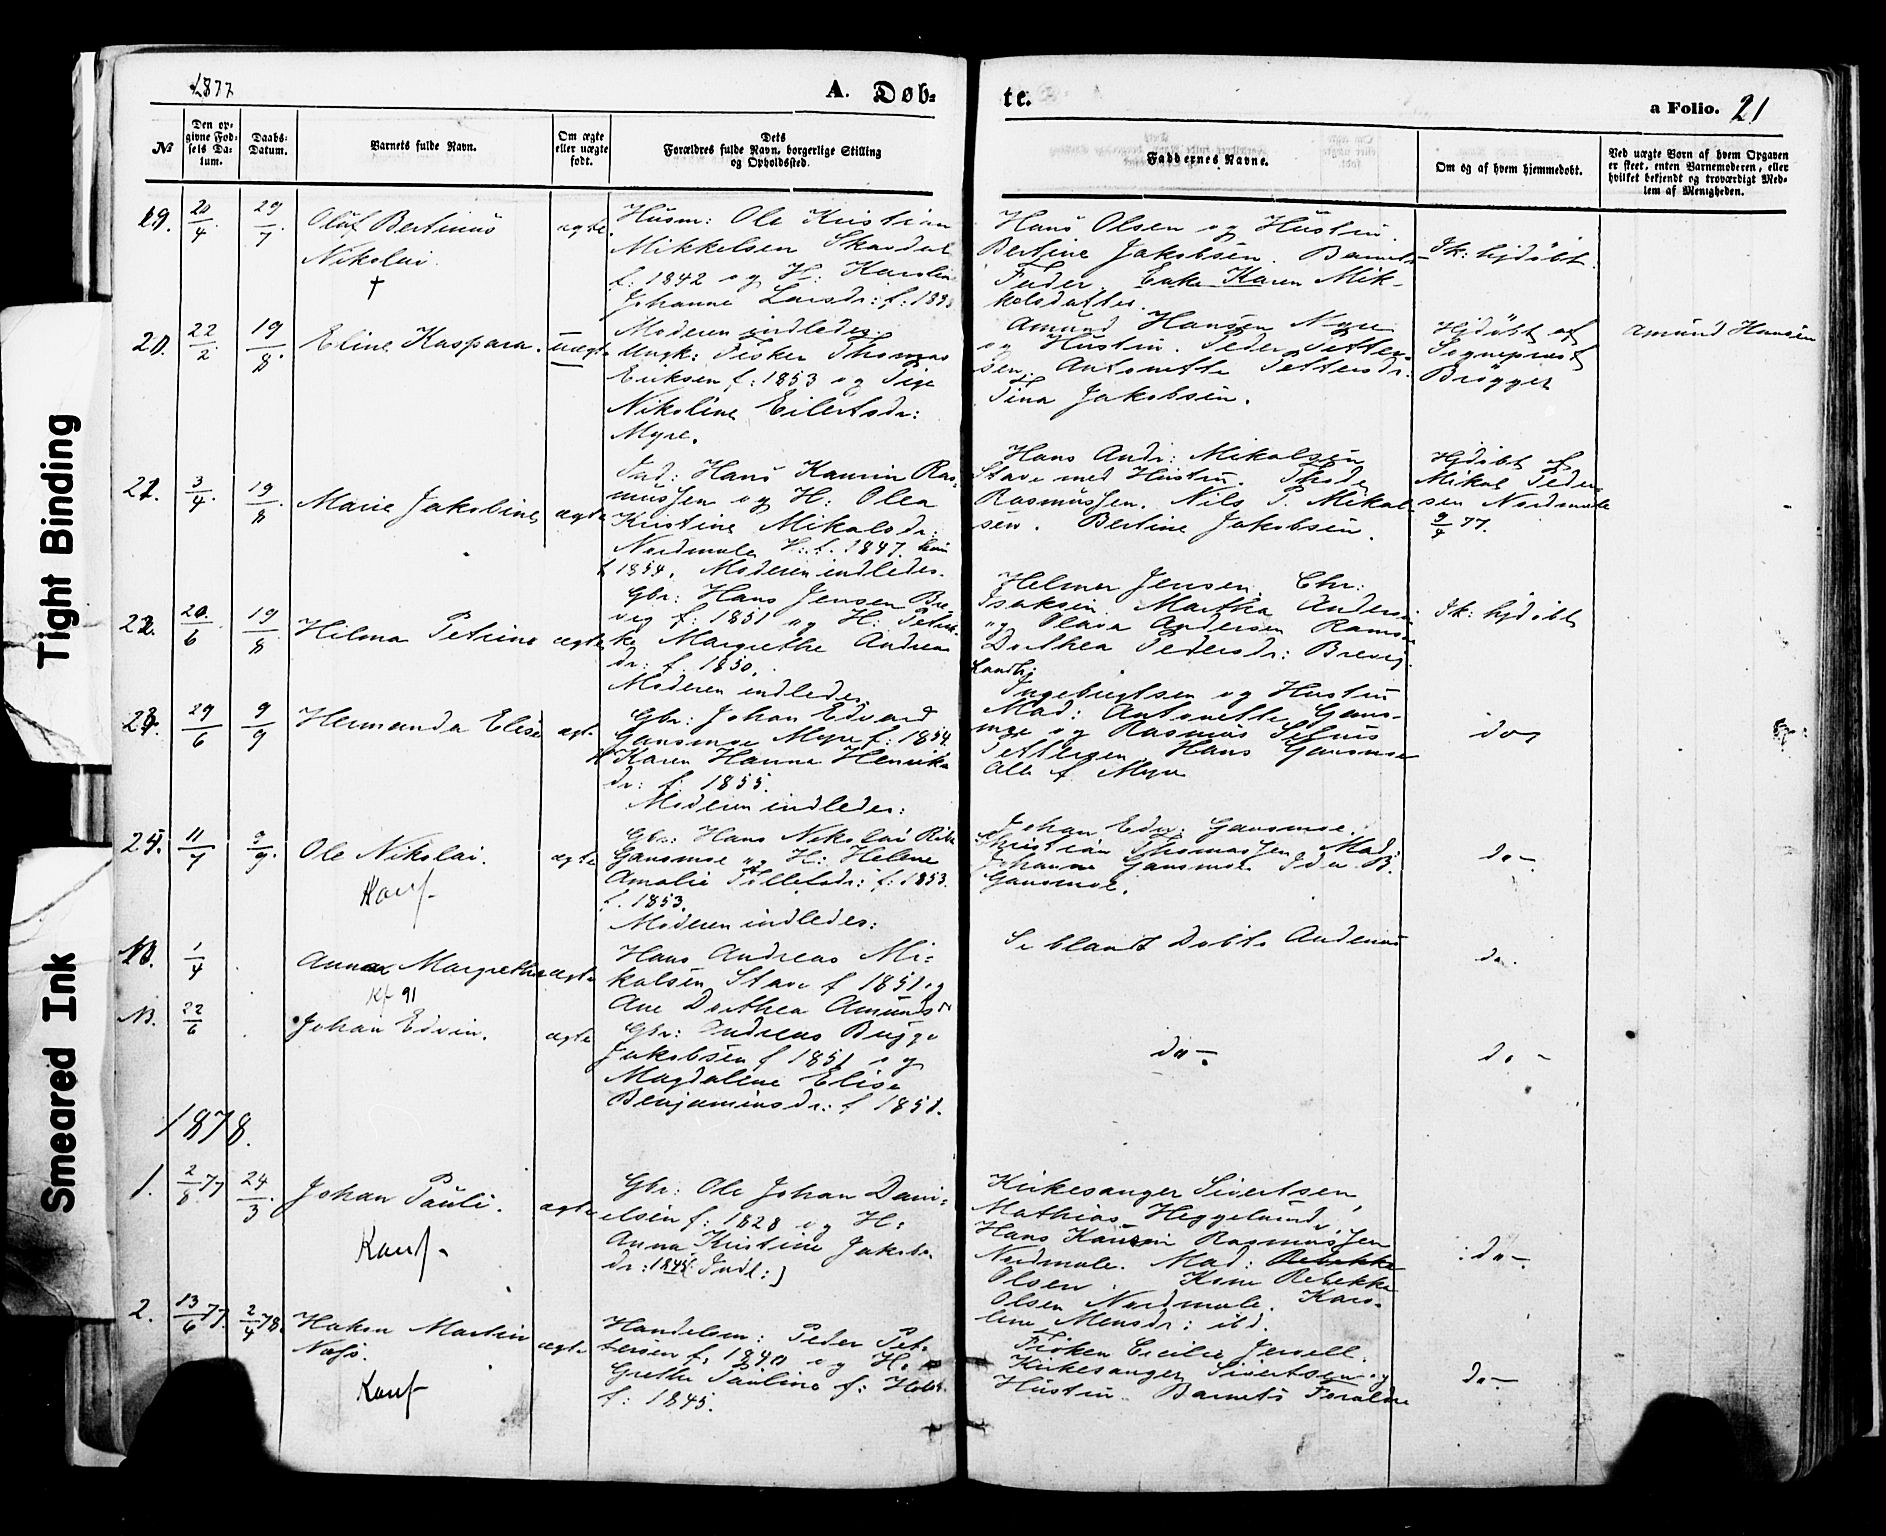 1877
A. Døb=
te.
a Folio. 21
№
Den op=
givne Fød=
sels Da=
tum.
Daabs=
Datum.
Barnets fulde Navn.
Om ægte
eller uægte
født.
Dets
Forældres fulde Navn, borgerlige Stilling
og Opholdssted.
Faddernes Navne.
Om og af hvem hjemmedøbt.
Ved uægte Børn af hvem Opgaven
er skeet, enten Barnemoderen, eller
hvilket bekjendt og troværdigt Med=
lem af Menigheden.
19. 20/4. 29/7.
Oluf Bertinus
Nikolai.
†
ægte.
Husm: Ole Kristian
Mikkelsen Skardal
f: 1842 og H: Karoline
Johanne Larsdr: f:
Hans Olsen og Hustru.
Bertine Jakobsen. Barnets
Fader. Enke Karen Mik-
kelsdatter.
Ik: hjdøbt.
20. 22/2. 19/8.
Eline Kaspara.
uægte
Moderen indledes.
Ungk: Fisker Thomas
Eriksen f: 1853 og Pige
Nikoline Eilertsdr:
Myre.
Amund Hansen Myre
og Hustru. Peder Petter-
sen. Antonette Pettersdr:
Tina Jakobsen.
Hjdøbt af
Sognepræst
Brøgger
Amund Hansen
21. 3/4. 19/8.
Marie Jakobine
ægte
Hans Kaurin Ras-
mussen og H: Olea
Kristine Mikalsdr:
Nordmele H: f. 1847. hun
f 1854. Moderen indledes.
Hans Andr: Mikalsen
Stave med Hustru.
Rasmussen. Nils P. Mikal-
sen. Bertine Jakobsen.
Hjdøbt af
Mikal Peder-
sen Nordmele
9/4 77.
22. 20./6 19/8
Hilma Petrine
ægte
Gbr: Hans Jensen Bre-
vig f: 1851 og H: Petrik-
ke Margrethe Andreas
dr: f. 1850.
Moderen indledes
Helmer Jensen. Chr:
Isaksen. Martha Andersen
og Olava Andersen Ramsø
Dorthea Pedersdr: Brevig.
Ik: hjdøbt
23. 29/6 9/9
Hermanda Elise
ægt.
Gbr: Johan Edvard
Gansmoe Myre f: 1854.
H Karen Hanna Henriks
dr: f. 1855.
Moderen indledes:
Landh:
Ingebrigtsen og Hustru
Mad: Antonette Gans-
moe og Rasmus
Pettersen Hans Gansmoe
Alle f Myre
do,
24. 11/7 9/9
Ole Nikolai.
Konf.
ægte
Gbr: Hans Nikolai
Gansmoe og H: Helene
Amalie Tollefsdr: f: 1853.
f. 1853.
Moderen indledes:
Johan Edv: Gansmoe.
Kristian Thomassen Mad:
Johanne Gansmoe Peder B.
Gansmoe.
do -
N. 1/4
Anna Margrethe
Kf 91
ægte
Hans Andreas Mi-
kalsen Stave f 1851 og
Ane Dorthea Amundsdr
Se blandt Døbte Andenes
do.
N. 22/6
Johan Edvin.
ægte
Gbr: Andreas Bugge
Jakobsen f 1851 og
Magdalene Elise
Benjaminsdr: f 1851.
do -.
do -
1878.
1. 2/8 77 24/3.
Johan Pauli.
Konf.
ægte
Gbr: Ole Johan Dani-
elsen f: 1828 og H:
Anna Kristine Jakobs
dr: 1844 Indl:)
Kirkesanger Sivertsen,
Mathias Heggelund,
Hans Kaurin Rasmussen
Nordmele. Mad: Rebekke
Olsen. Kone Rebekke
Olsen Nordmele. Karo-
line Mensdr: ibd.
: do -.
2. 13/6 77. 2/4 78.
Hakon Martin
Næsø.
Konf
ægte
Handelsm: Peder Pet-
tersen f. 1840 og H.
Grethe Pauline f: Holst
f: 1845.
Frøken Cecilie Jervell.
Kirkesanger Sivertsen og
Hustru. Barnets Forældre
do -
Tight Binding
Smeared Ink